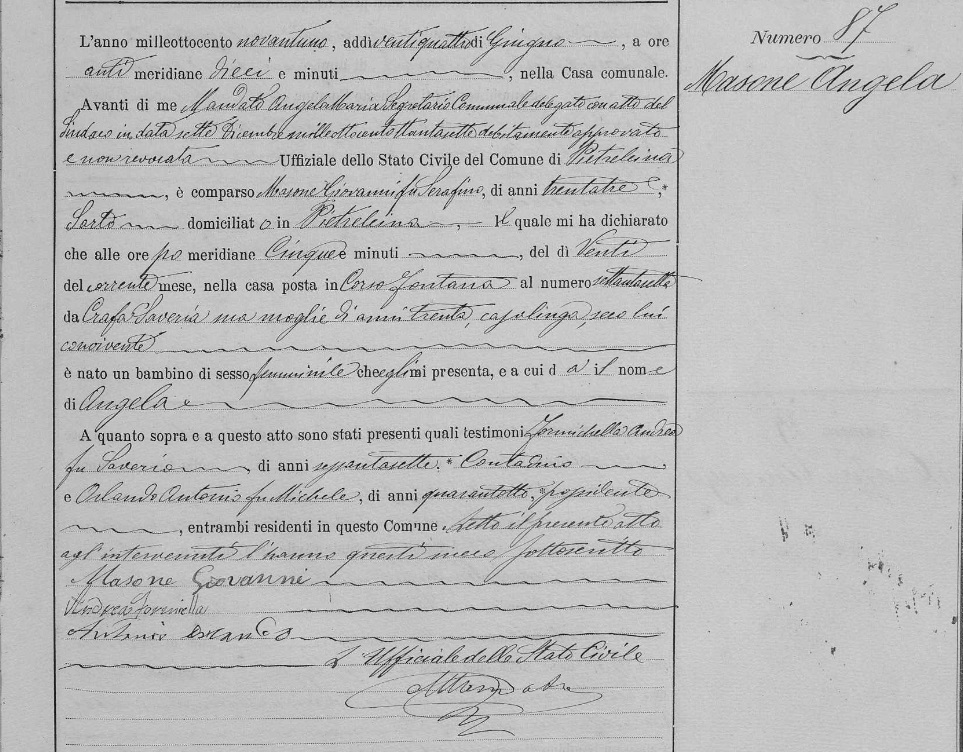 Numero 87
Masone Angela
L'anno milleottocento novantuno, addì ventiquattro di Giugno, a ore
anti meridiane dieci e minuti, nella Casa comunale.
Avanti di me Mandato Angelo Maria Segretario Comunale delegato con atto del
Sindaco in data sette Dicembre milleottocentottantasette debitamente approvato
e non revocata Uffiziale dello Stato Civile del Comune di Pietrelcina
, è comparso Masone Giovanni fu Serafino, di anni trentatre,
Sarto domiciliato in Pietrelcina, Il quale mi ha dichiarato
che alle ore po meridiane Cinque e minuti, del dì Venti
del corrente mese, nella casa posta in Corso Fontana al numero settantasette
da Crafa Saveria sua moglie di anni trenta, casalinga, seco lui
convivente
è nato un bambino di sesso femminile che egli mi presenta, e a cui dà il nome
di Angela
A quanto sopra e a questo atto sono stati presenti quali testimoni Formichella Andrea
fu Saverio, di anni Contadino
e Orlando Antonio fu Michele, di anni quarantotto, possidente
, entrambi residenti in questo Comune. Letto il presente atto
agl'intervenuti l'hanno questi meco sottoscritto
Masone Giovanni
Andrea
Antonio Orlando
L'Uffiziale dello Stato Civile
AMandato